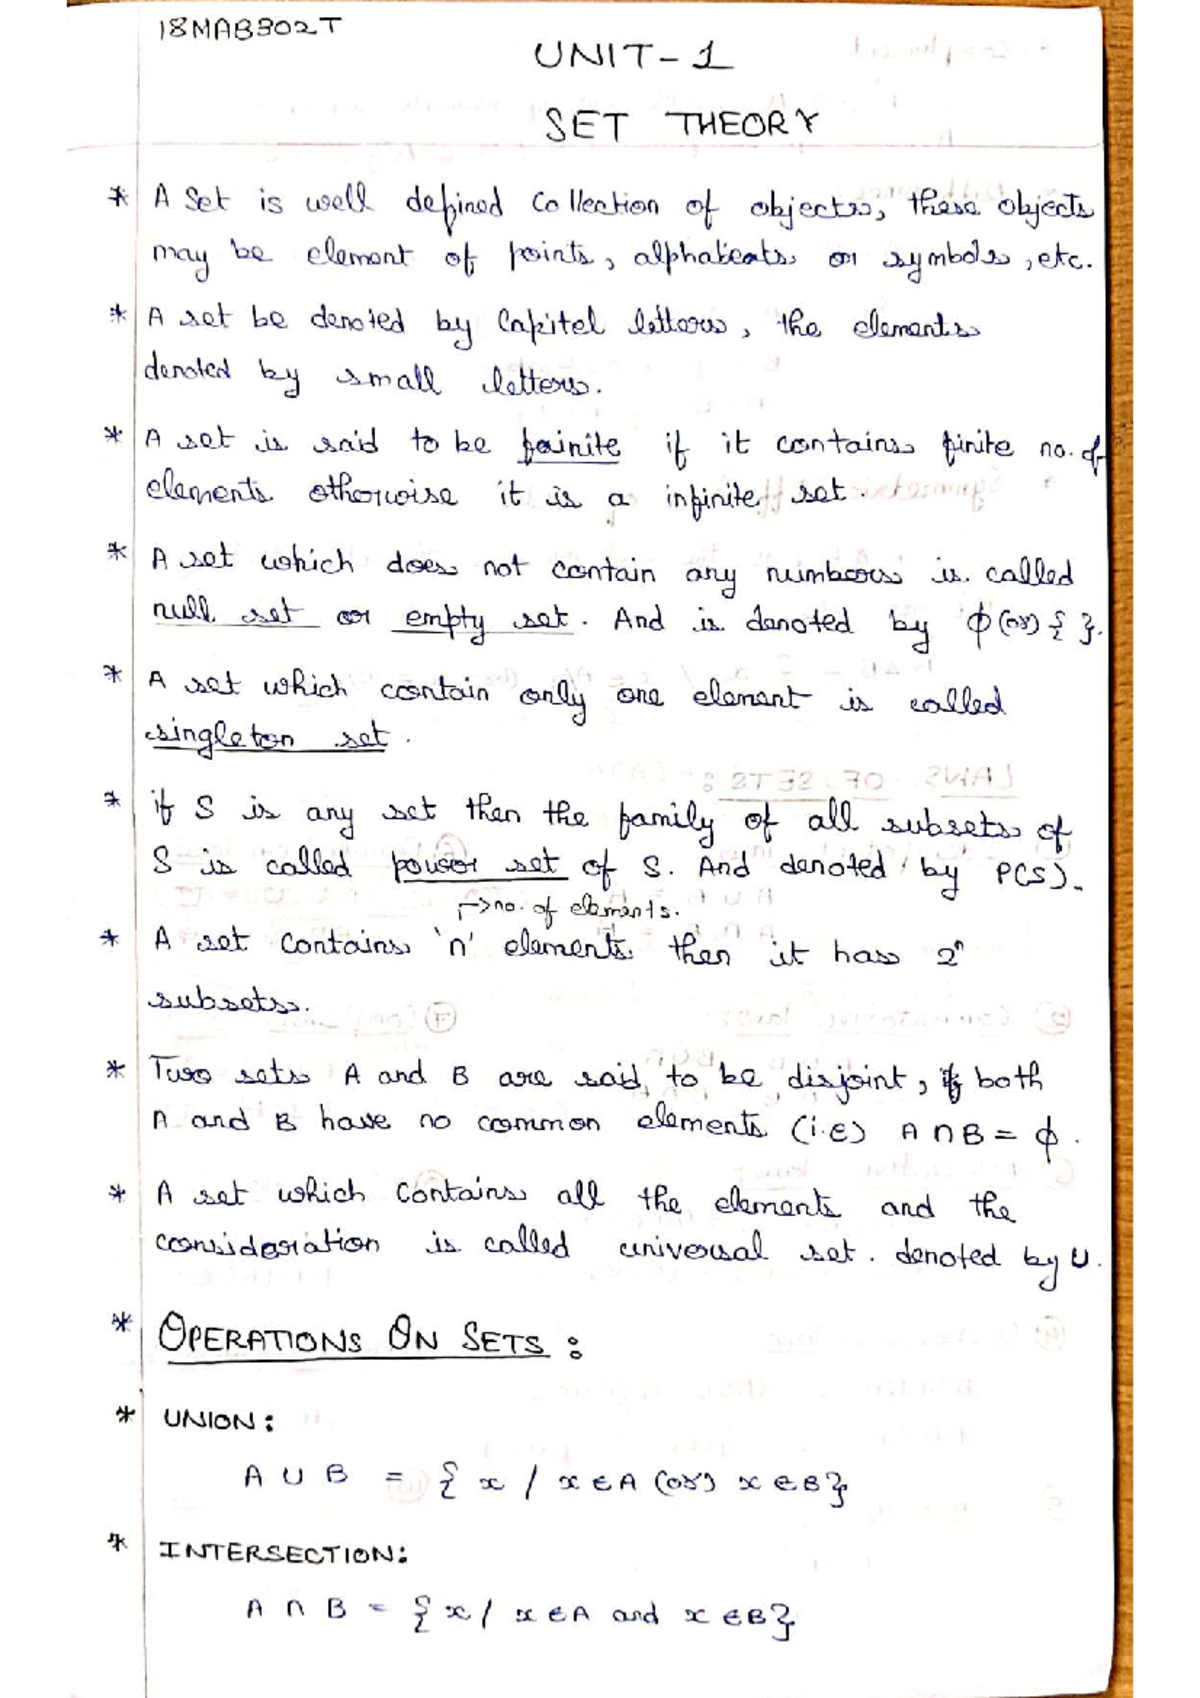 18MAB302T
UNIT-1
SET THEORY
* A Set is well defined collection of objects, these objects
may be element of points, alphabeats or symbols, etc.
* A set be denoted by Capitel letters, the elements
denoted by small letters.
* A set is said to be fainite if it contains finite no. of
elements otherwise it is a infinite set.
* A set which does not contain any numbers is called
null set or empty set. And is denoted by φ (or) { }.
* A set which contain only one element is called
singleton set.
* if S is any set then the family of all subsets of
S is called power set of S. And denoted by P(S).
→ no. of elements.
* A set contains 'n' elements then it has 2ⁿ
subsets.
* Two sets A and B are said to be disjoint, if both
A and B have no common elements (i.e) A ∩ B = φ.
* A set which contains all the elements and the
consideration is called universal set. denoted by U.
* OPERATIONS ON SETS:
* UNION:
A ∪ B = { x / x ∈ A (or) x ∈ B}
* INTERSECTION:
A ∩ B = { x / x ∈ A and x ∈ B}